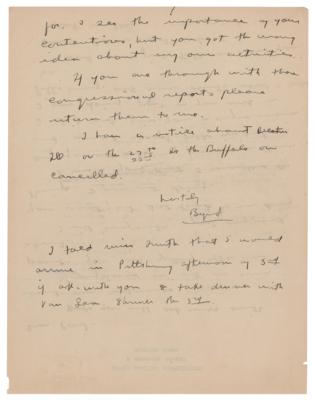 for. I see the importance of your
contentions, but you got the wrong
idea about my own activities.
If you are through with those
congressional reports please
return them to me.
I have a notice about
on the is the Buffalo on
cancelled.
Hastily
Byrd
I told Miss Smith that I would
arrive in Pittsburg afternoon of 31
if with you & take dinner with
Van